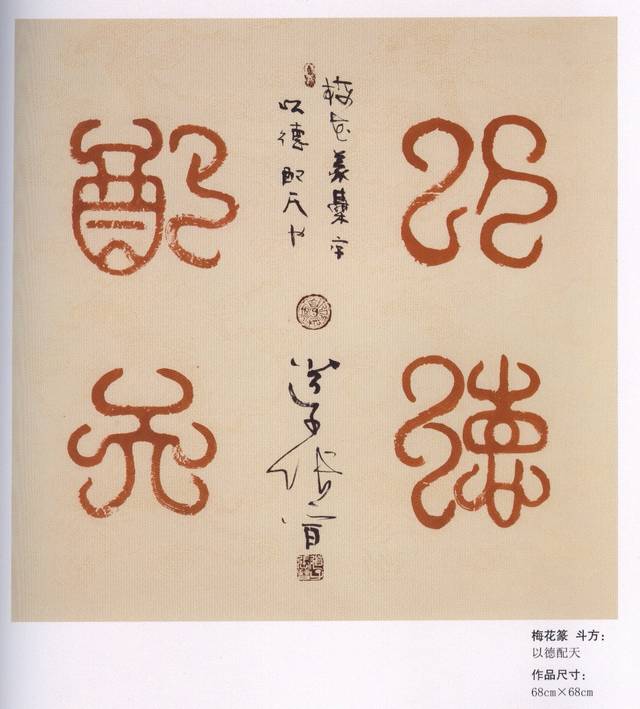 以德
配天
梅花篆集字
以德配天
梅花篆 斗方：
以德配天
作品尺寸：
68cm×68cm